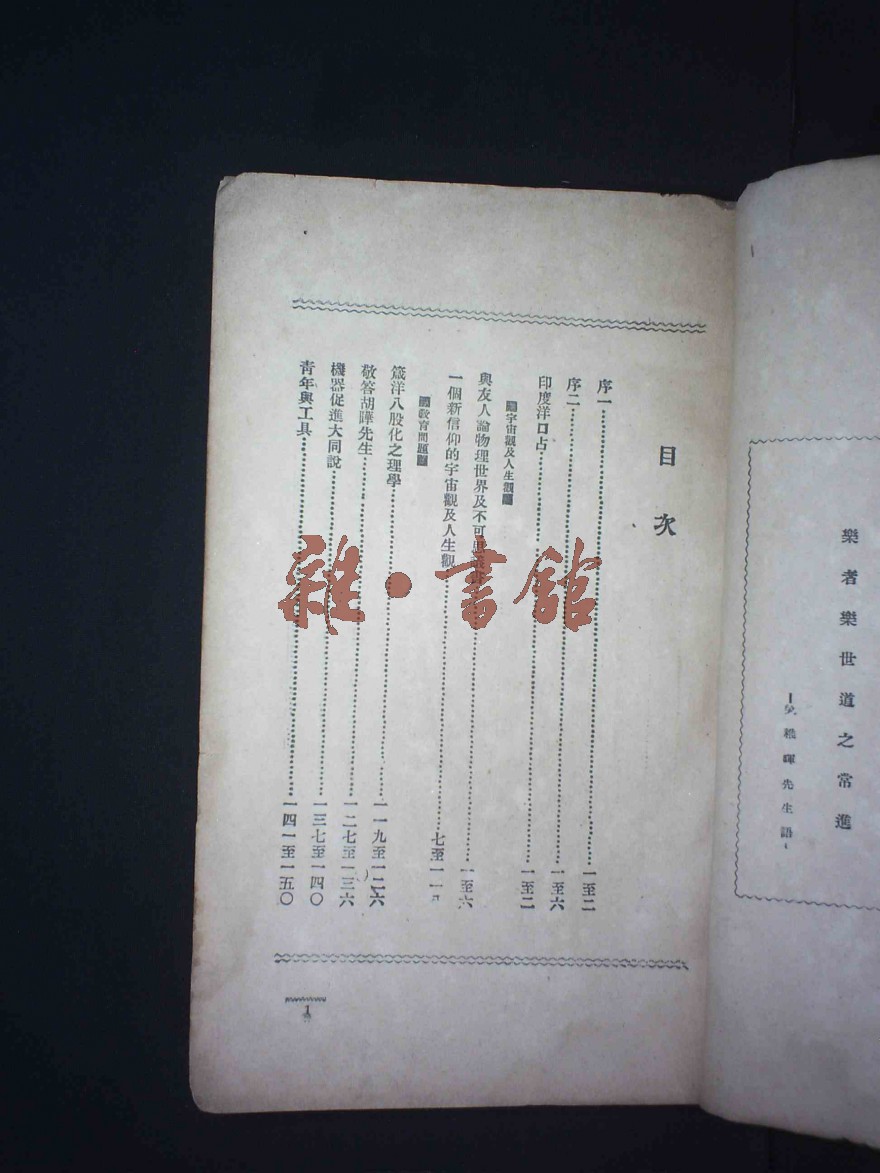 樂者樂世道之常進
吳稚暉先生語
目次
序一 一至二
序二 一至六
印度洋口占 一至二
宇宙觀及人生觀
與友人論物理世界及不可思議 一至六
一個新信仰的宇宙觀及人生觀 七至一一
教育問題
箴洋八股化之理學 一一九至一二六
敬答胡曄先生 一二七至一三六
機器促進大同說 一三七至一四〇
青年與工具 一四一至一五〇
1
雜·書館